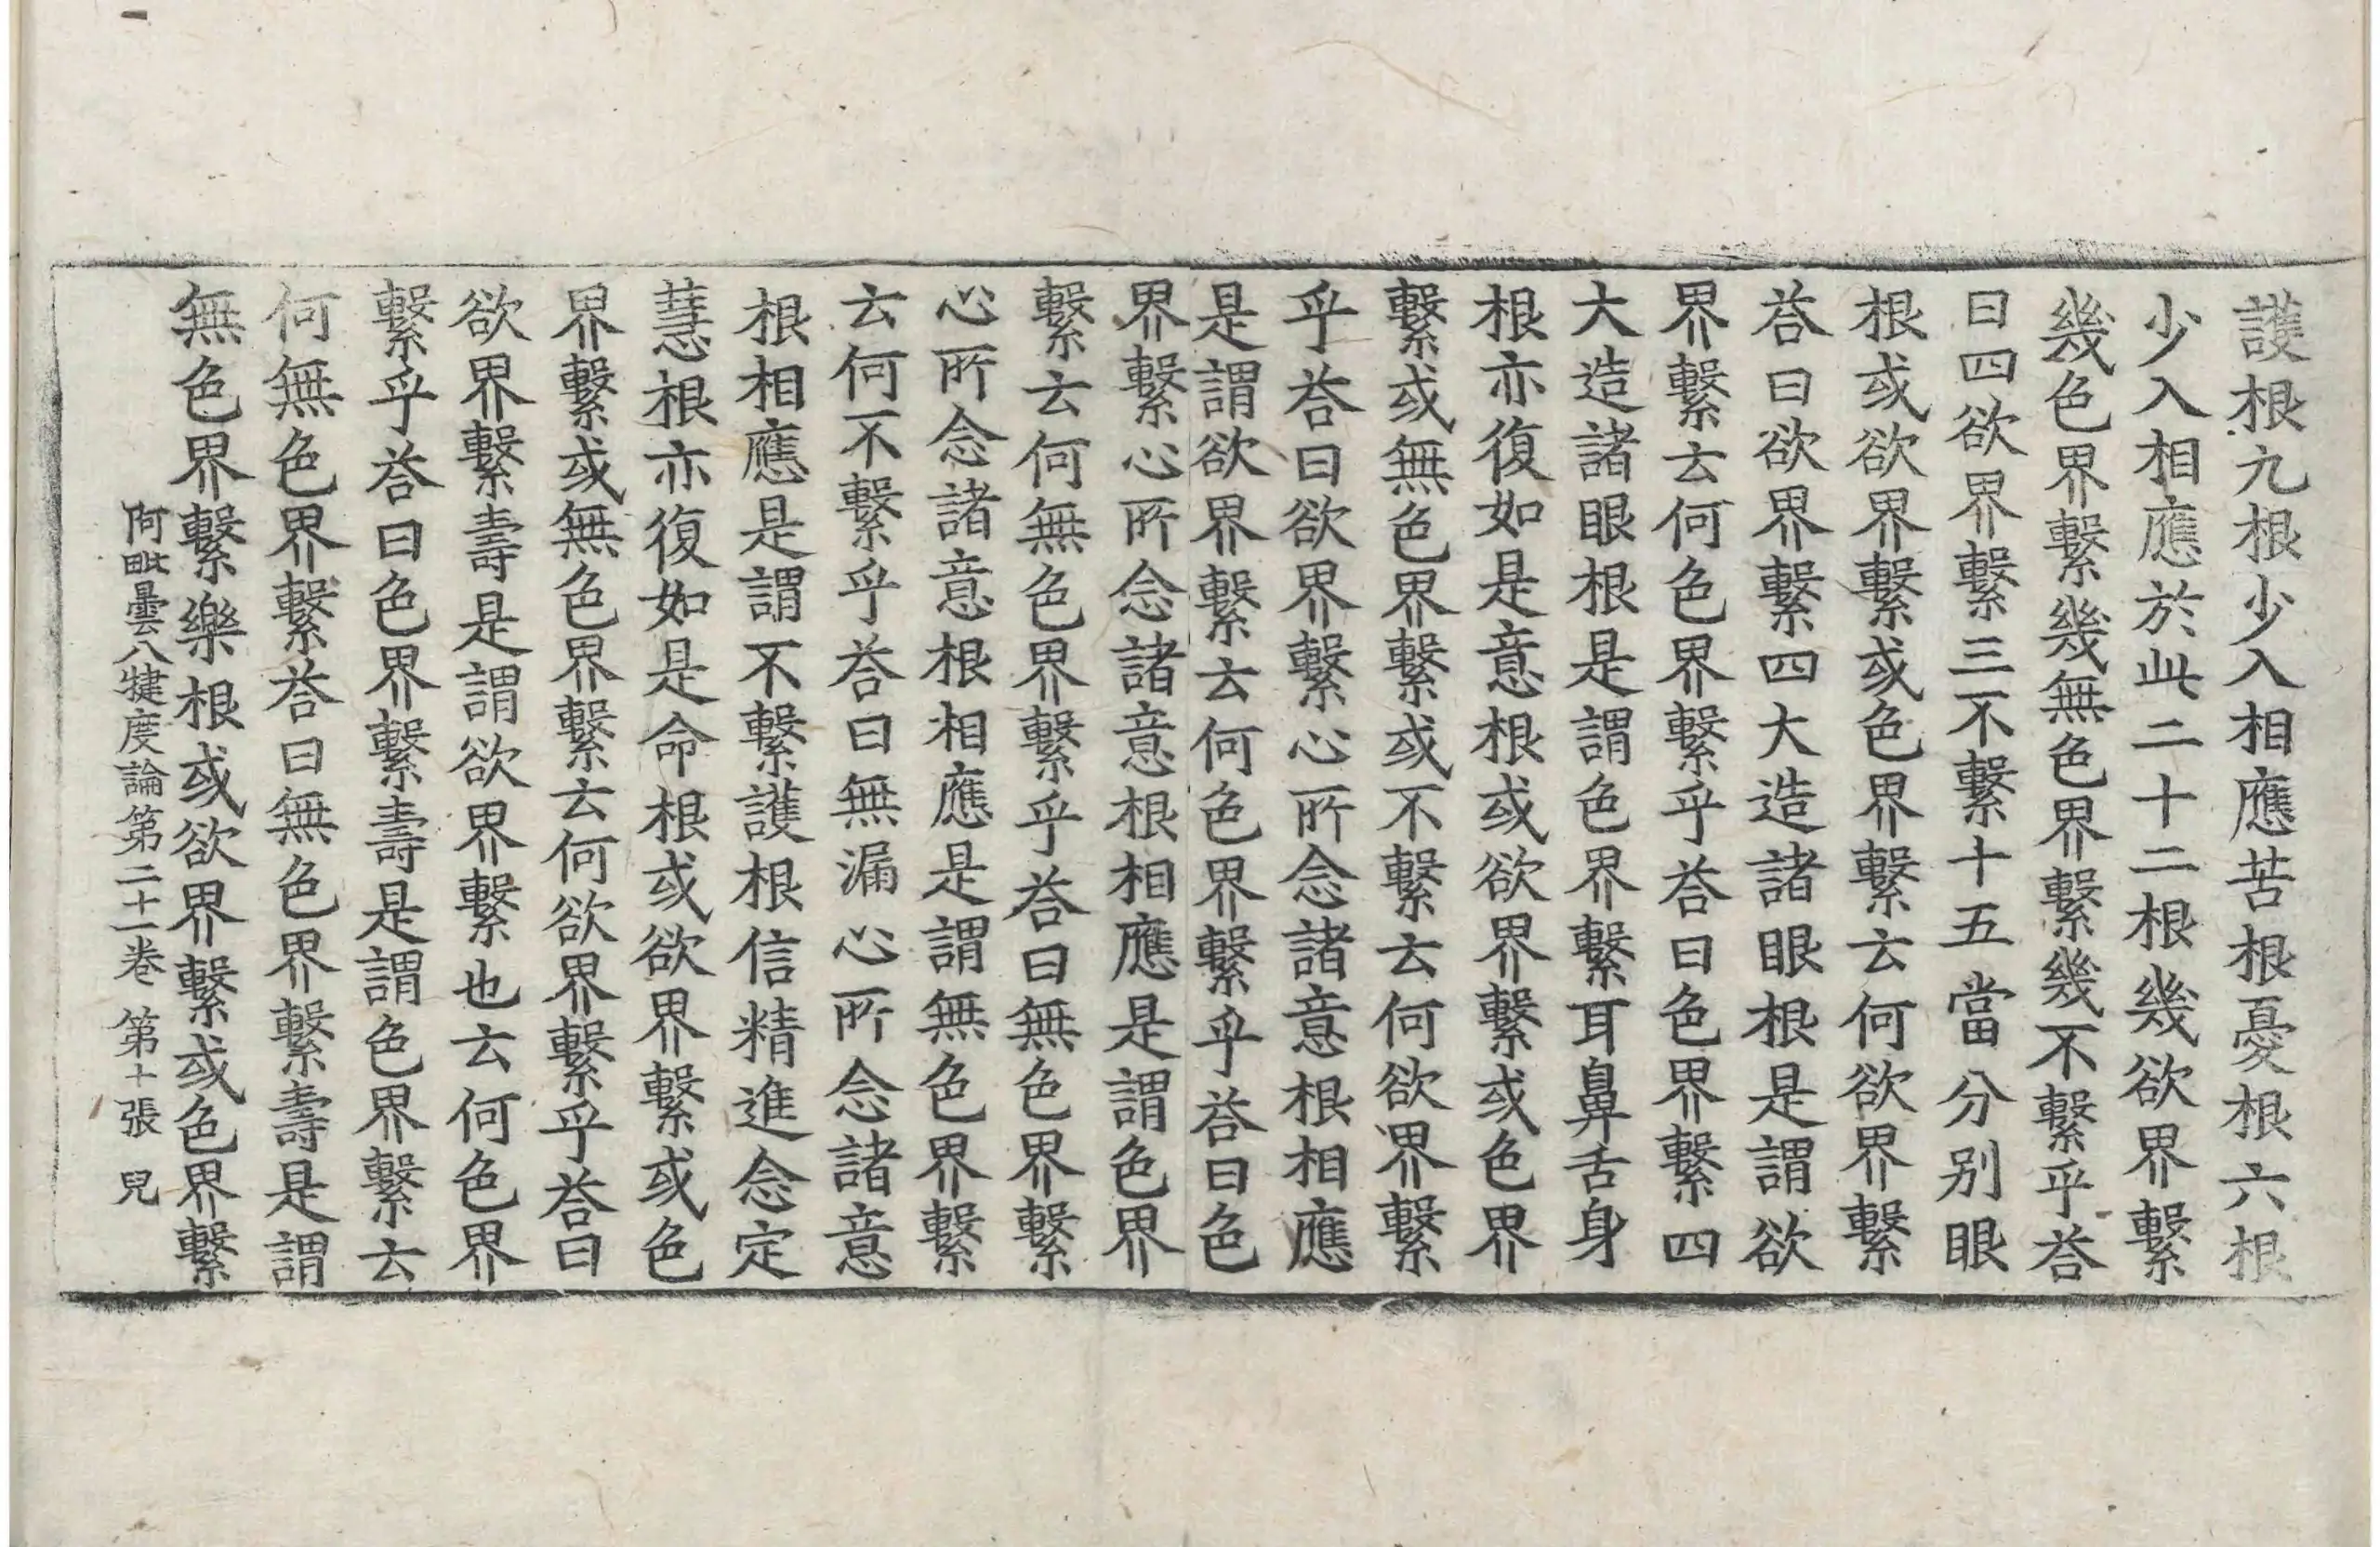 護根九根少入相應苦根憂根六根
少入相應於此二十二根幾欲界繫
幾色界繫幾無色界繫幾不繫乎荅
曰四欲界繫三不繫十五當分別眼
根或欲界繫或色界繫云何欲界繫
荅曰欲界繫四大造諸眼根是謂欲
界繫云何色界繫乎荅曰色界繫四
大造諸眼根是謂色界繫耳鼻舌身
根亦復如是意根或欲界繫或色界
繫或無色界繫或不繫云何欲界繫
乎荅曰欲界繫心所念諸意根相應
是謂欲界繫云何色界繫乎荅曰色
界繫心所念諸意根相應是謂色界
繫云何無色界繫乎荅曰無色界繫
心所念諸意根相應是謂無色界繫
云何不繫乎荅曰無漏心所念諸意
根相應是謂不繫護根信精進念定
慧根亦復如是命根或欲界繫或色
界繫或無色界繫云何欲界繫乎荅曰
欲界繫壽是謂欲界繫也云何色界
繫乎荅曰色界繫壽是謂色界繫云
何無色界繫荅曰無色界繫壽是謂
無色界繫樂根或欲界繫或色界繫
阿毗曇八犍度論第二十一卷 第十張 兒